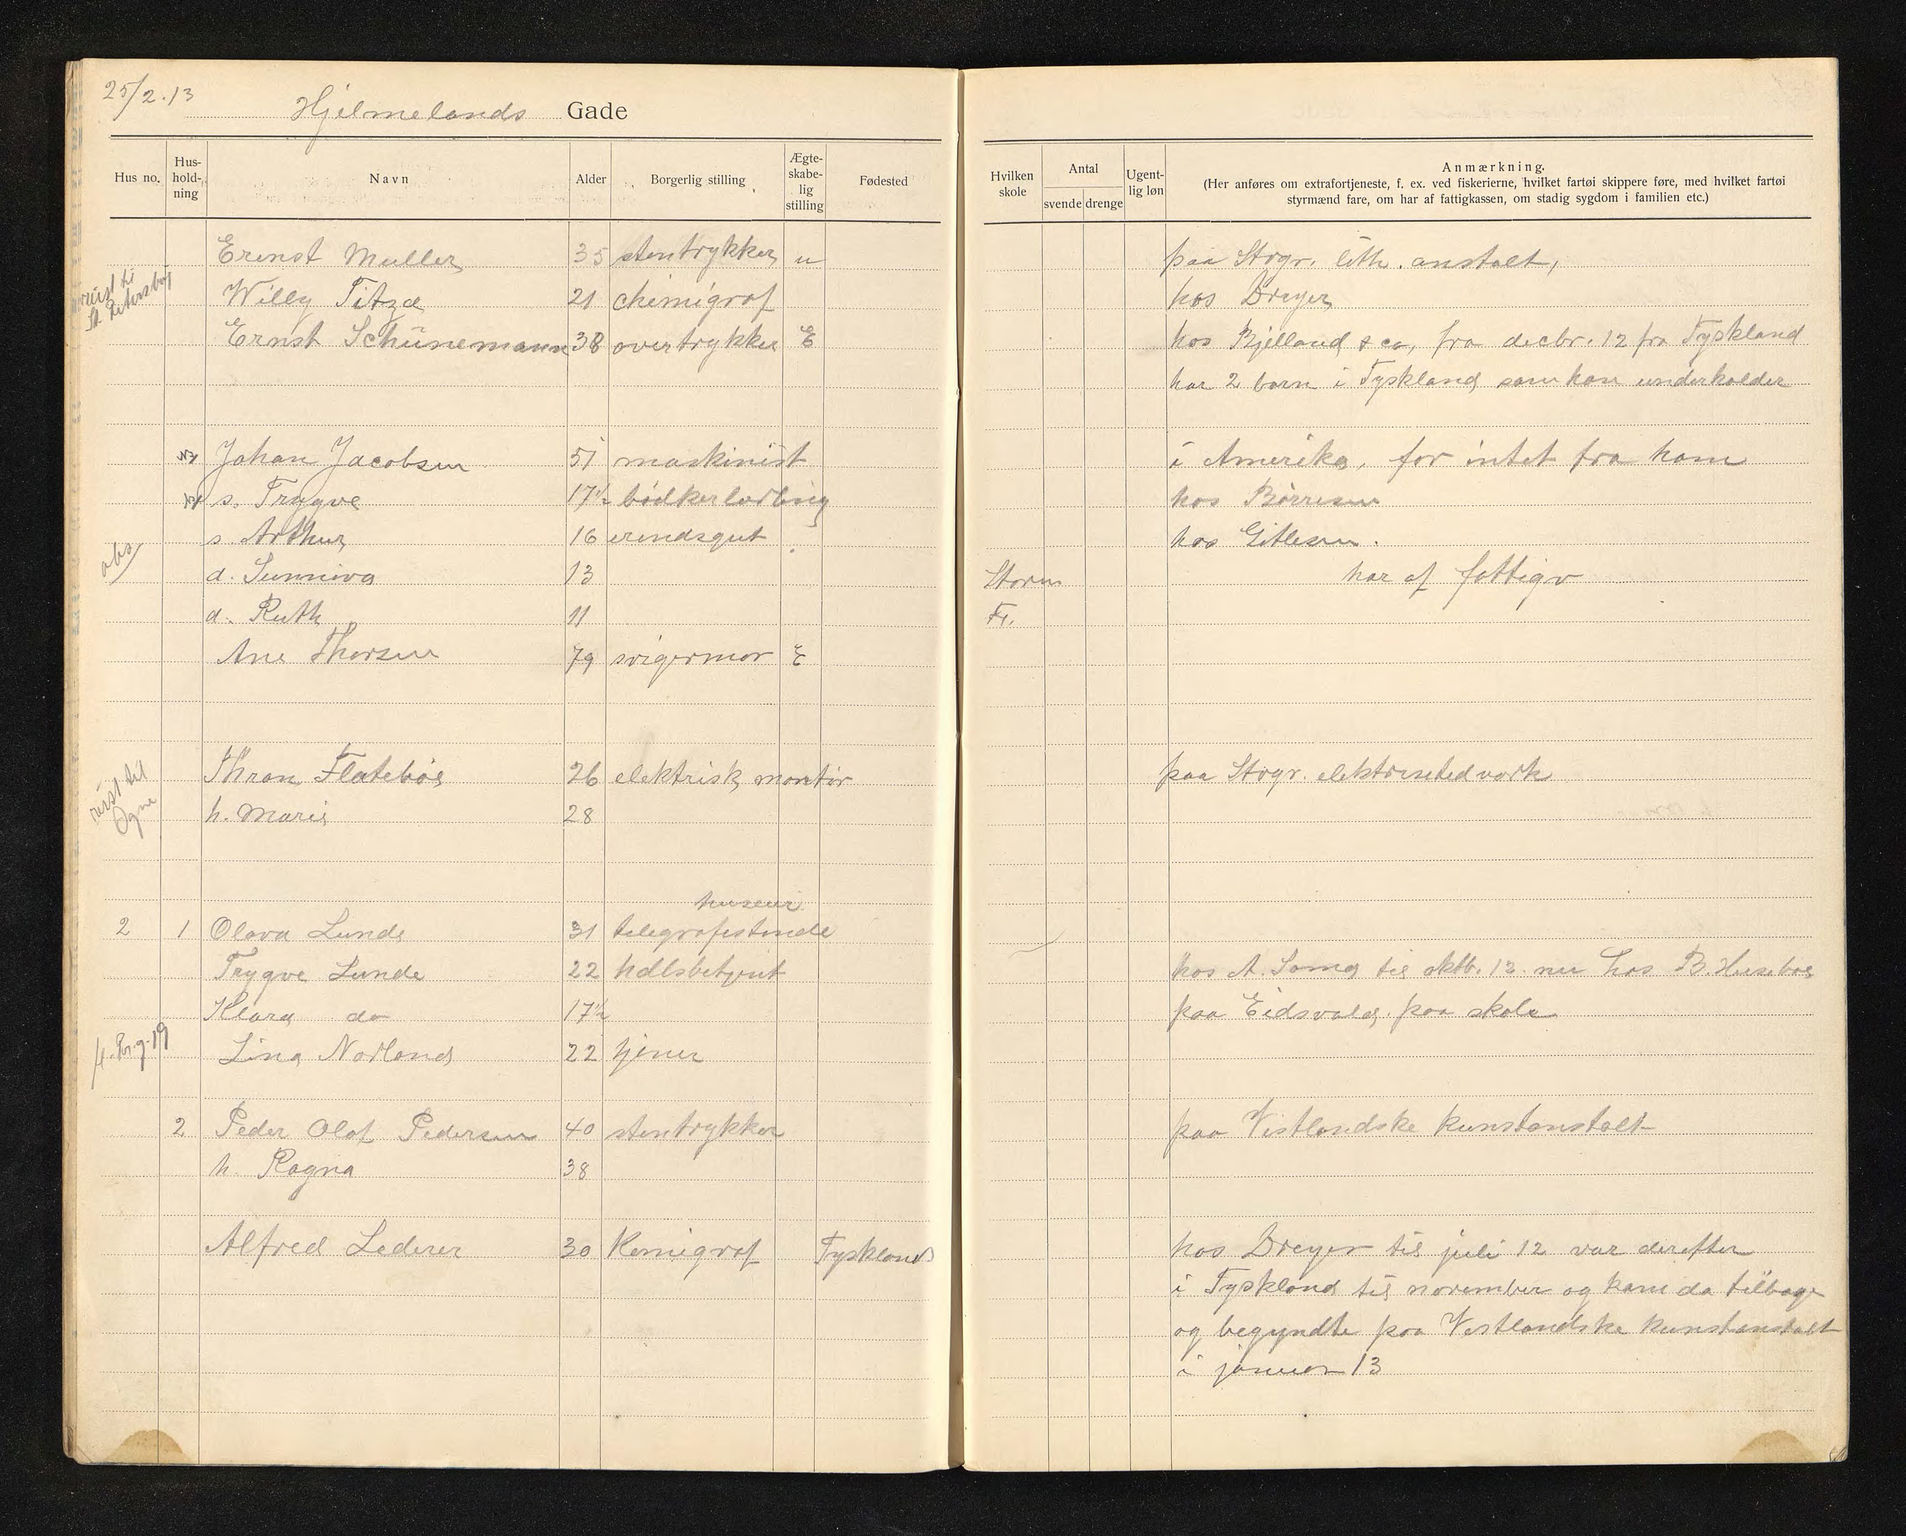 25/2.13
Hjelmelands Gade
Hus no. Hus-hold-ning Navn Alder Borgerlig stilling Ægte-skabe-lig stilling Fødested
Hvilken skole Antal svende drenge Ugent-lig løn Anmærkning.
(Her anføres om extrafortjeneste, f. ex. ved fiskerierne, hvilket fartøi skippere føre, med hvilket fartøi
styrmænd fare, om har af fattigkassen, om stadig sygdom i familien etc.)
Ernst Muller 35 stentrykker u paa Stvgr. lith. anstalt,
reist til
St. Petersborg
Willy Titze 21 chemigraf hos Dreyer
Ernst Schünemann 38 overtrykker E hos Bjelland & co, fra decbr. 12 fra Tyskland
har 2 barn i Tyskland som han underholder
Johan Jacobsen 51 maskinist i Amerika, for intet fra ham
s. Trygve 17½ bødkerlærling hos Børresen
s Arthur 16 erendsgut hos Gitlesen.
obs
d. Sunniva 13 Storm har af fattigv
d. Ruth 11 Fr.
Ane Thorsen 79 svigermor E
Thron Flatebøe 26 elektrisk montør paa Stvgr. elektrisitedverk
reist til
Ogne
h. Marie 28
huseier
2 1 Olava Lunde 31 telegrafistinde
Trygve Lunde 22 hdlsbetjent hos A. Soma til oktb. 12 nu hos B Husebøe
Klara do 17½ paa Eidsvold paa skole
Lina Norland 22 tjener
2 Peder Olaf Pedersen 40 stentrykker paa Vestlandske kunstanstalt
h. Ragna 38
Alfred Lederer 30 Kemigraf Tyskland hos Dreyer til juli 12 var derefter
i Tyskland til november og kom da tilbage
og begyndte paa Vestlandske kunstanstalt
i januar 13